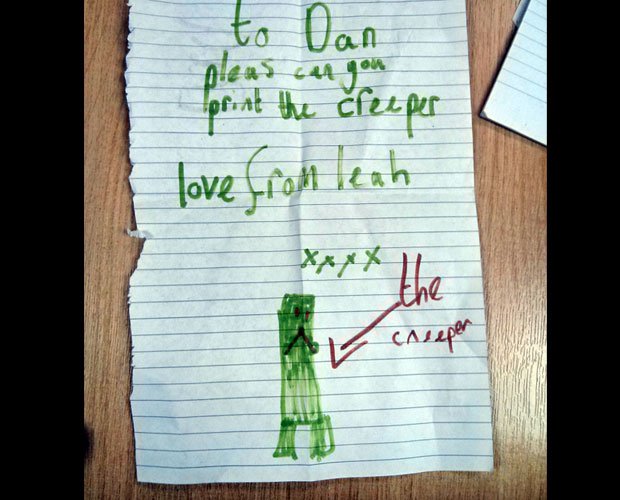 to Dan
pleas can you
print the creeper
love from leah
xxxx
the
creeper